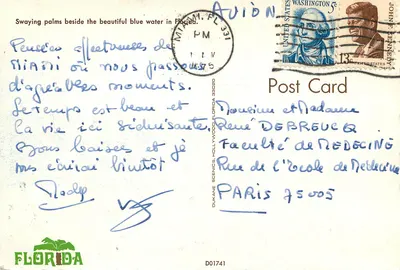 Swaying palms beside the beautiful blue water in Florida.
AVION
MIAMI, FL 331
PM
1975
UNITED STATES
WASHINGTON 5c
13c
Post Card
Pensées affectueuses de
MIAMI où nous passons
d'agréables moments.
Le temps est beau et
la vie ici séduisante,
Bons baisers et je
vous écrirai bientôt
Monsieur et Madame
René DEBREUCQ
Faculté de MEDECINE
Rue de l'Ecole de Médecine
PARIS 75005
FLORIDA
D01741